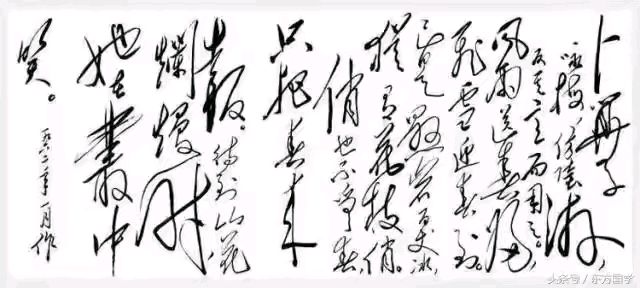 卜算子
咏梅,傍陸游,
反其意而用之。
风雨送春归,
飛雪迎春到。
已是懸岩百丈冰,
犹有花枝俏。
俏也不争春,
只把春来
报。待到山花
爛熳时,
她在叢中
笑。
年一月作
头条号 / 东方国学